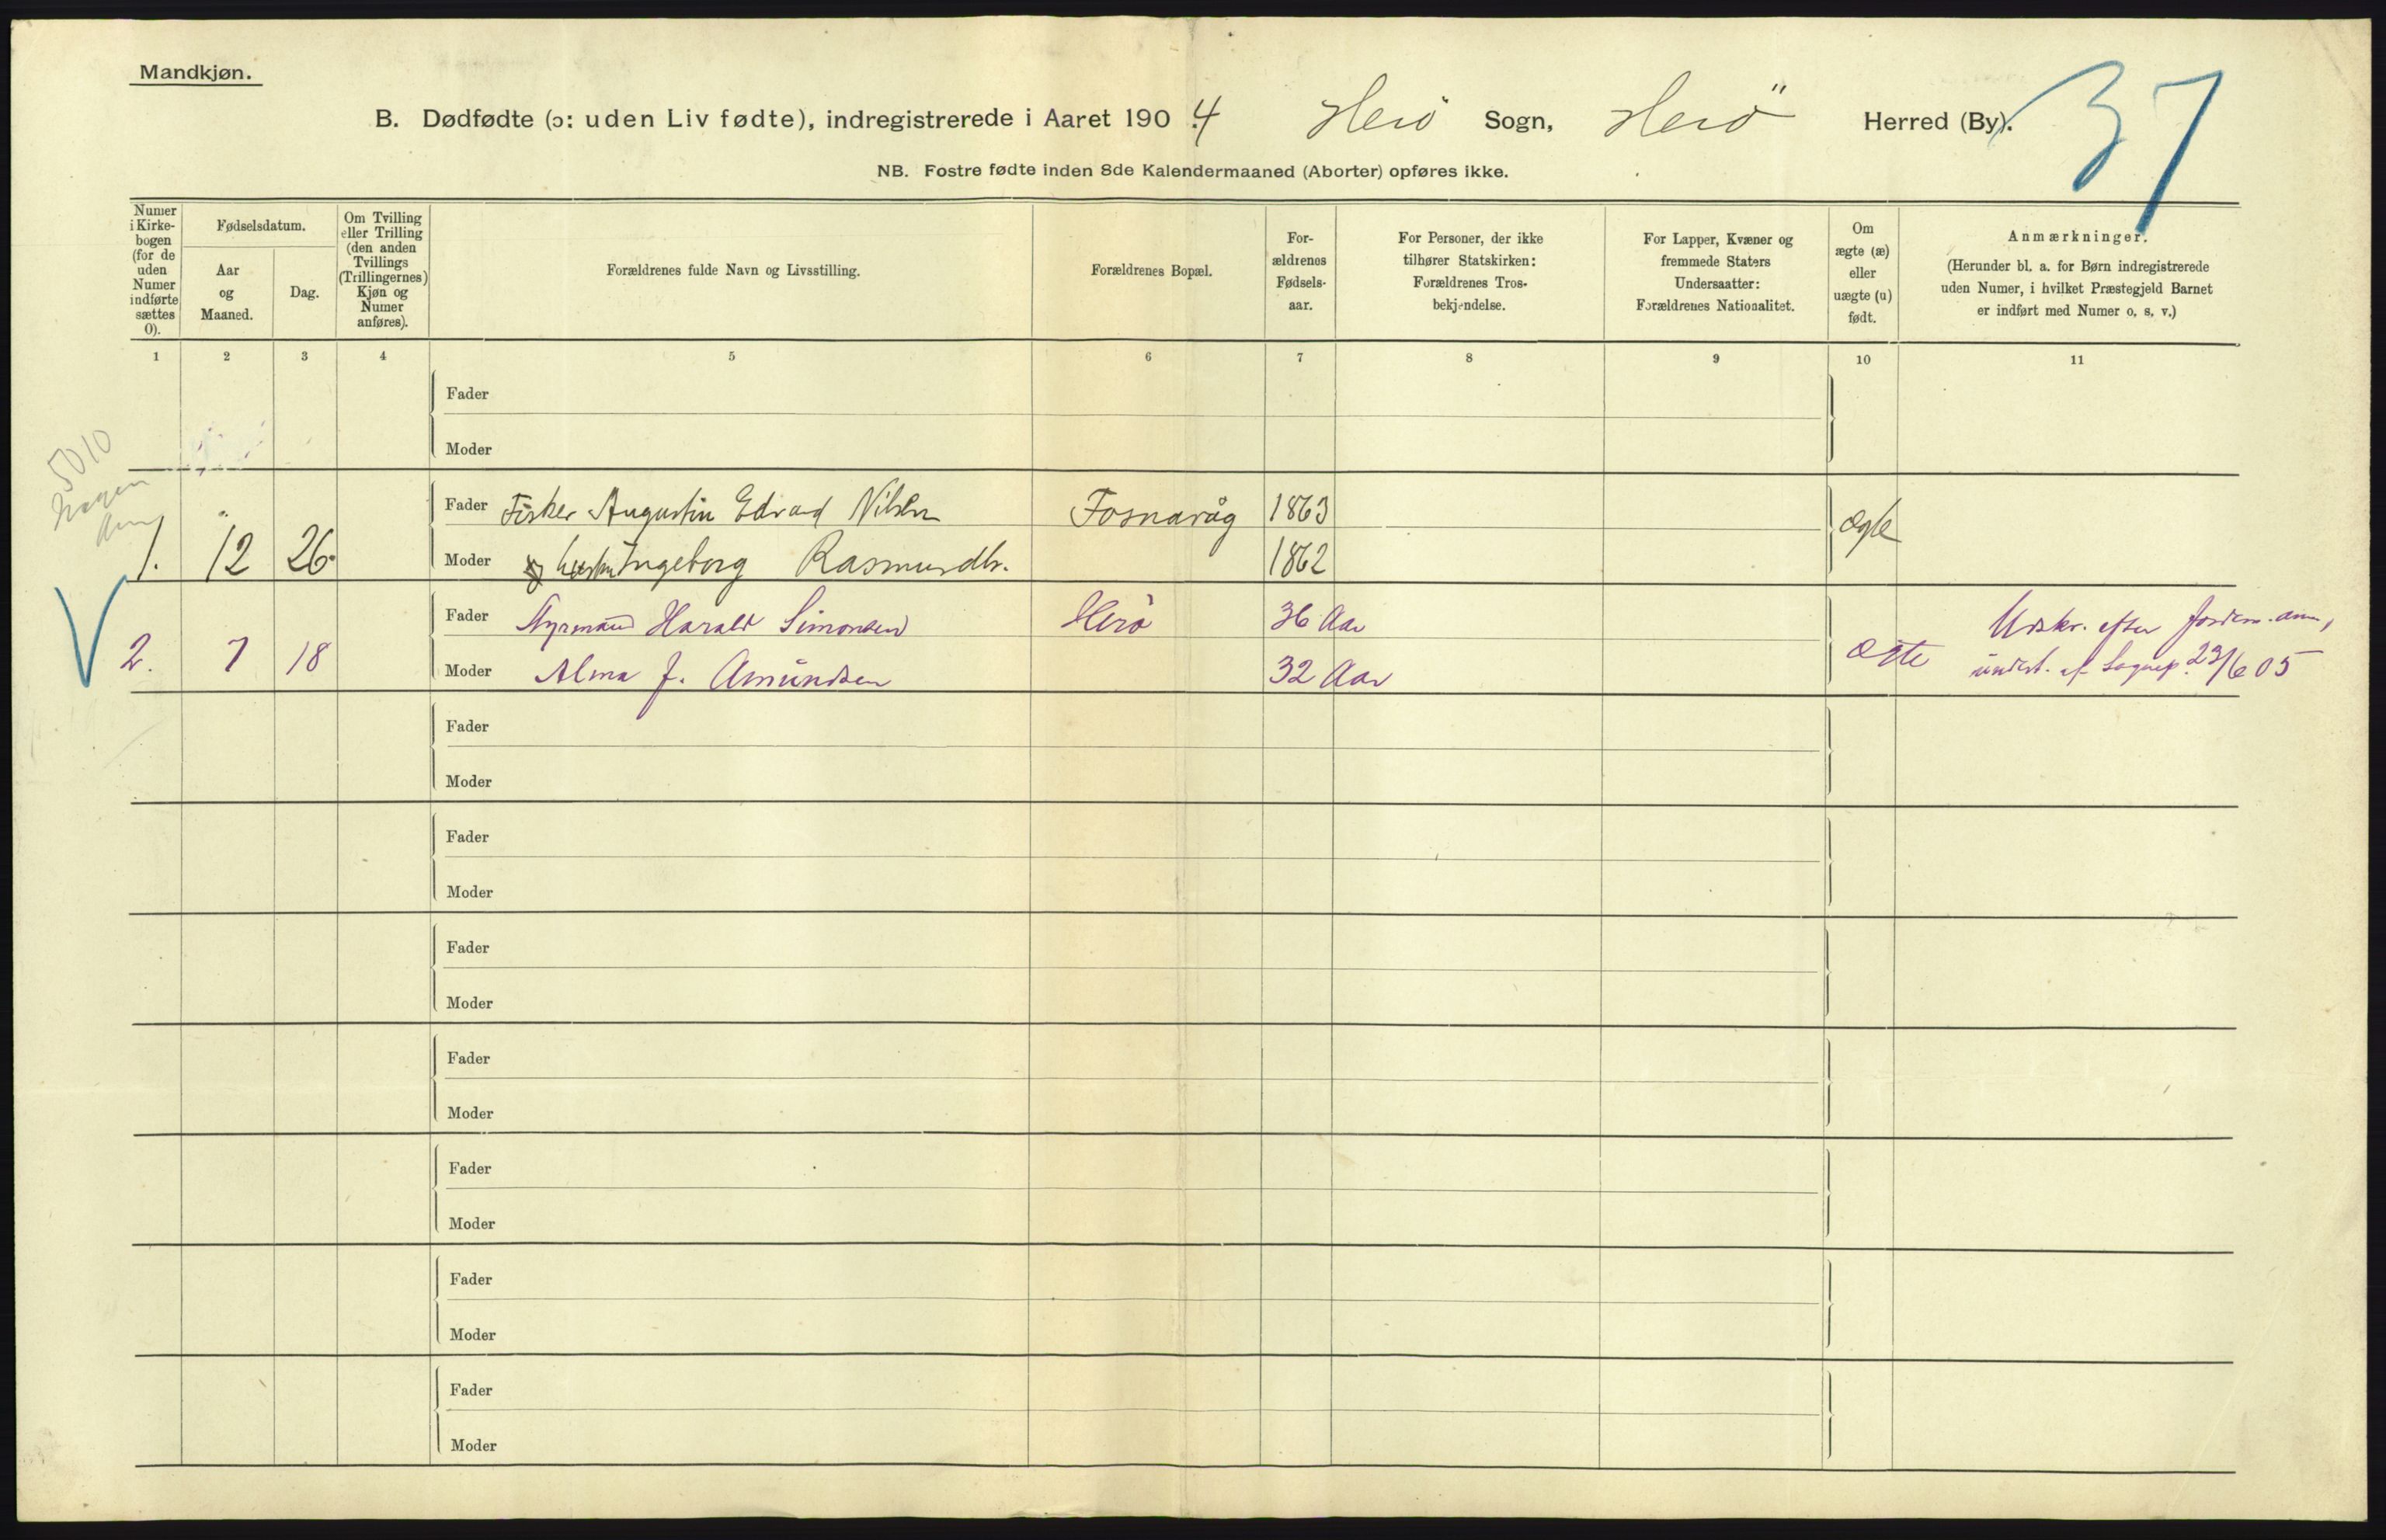 Mandkjøn.
37
B. Dødfødte (ɔ: uden Liv fødte), indregistrerede i Aaret 1904 Herö Sogn, Herö Herred (By).
NB. Fostre fødte inden 8de Kalendermaaned (Aborter) opføres ikke.
Numer i Kirkebogen (for de uden Numer indførte sættes 0).
Fødselsdatum.
Aar og Maaned.
Dag.
Om Tvilling eller Trilling (den anden Tvillings (Trillingernes) Kjøn og Numer anføres).
Forældrenes fulde Navn og Livsstilling.
Forældrenes Bopæl.
For-ældrenes Fødsels-aar.
For Personer, der ikke tilhører Statskirken: Forældrenes Tros-bekjendelse.
For Lapper, Kvæner og fremmede Staters Undersaatter: Forældrenes Nationalitet.
Om ægte (æ) eller uægte (u) født.
Anmærkninger.
(Herunder bl. a. for Børn indregistrerede uden Numer, i hvilket Præstegjeld Barnet er indført med Numer o. s. v.)
1 2 3 4 5 6 7 8 9 10 11
Fader
Moder
5010
Fader Fisker Augustin Edvard Nilsen Fosnavåg 1863 ægte
1. 12 26. Moder og hustru Ingeborg Rasmusdtr. 1862
Fader Styrmand Harald Simonsen Herö 36 Aar Udskr. efter
2. 7 18 Moder Alma J. Amundsen 32 Aar ægte 23/6 05
Fader
Moder
Fader
Moder
Fader
Moder
Fader
Moder
Fader
Moder
Fader
Moder
Fader
Moder